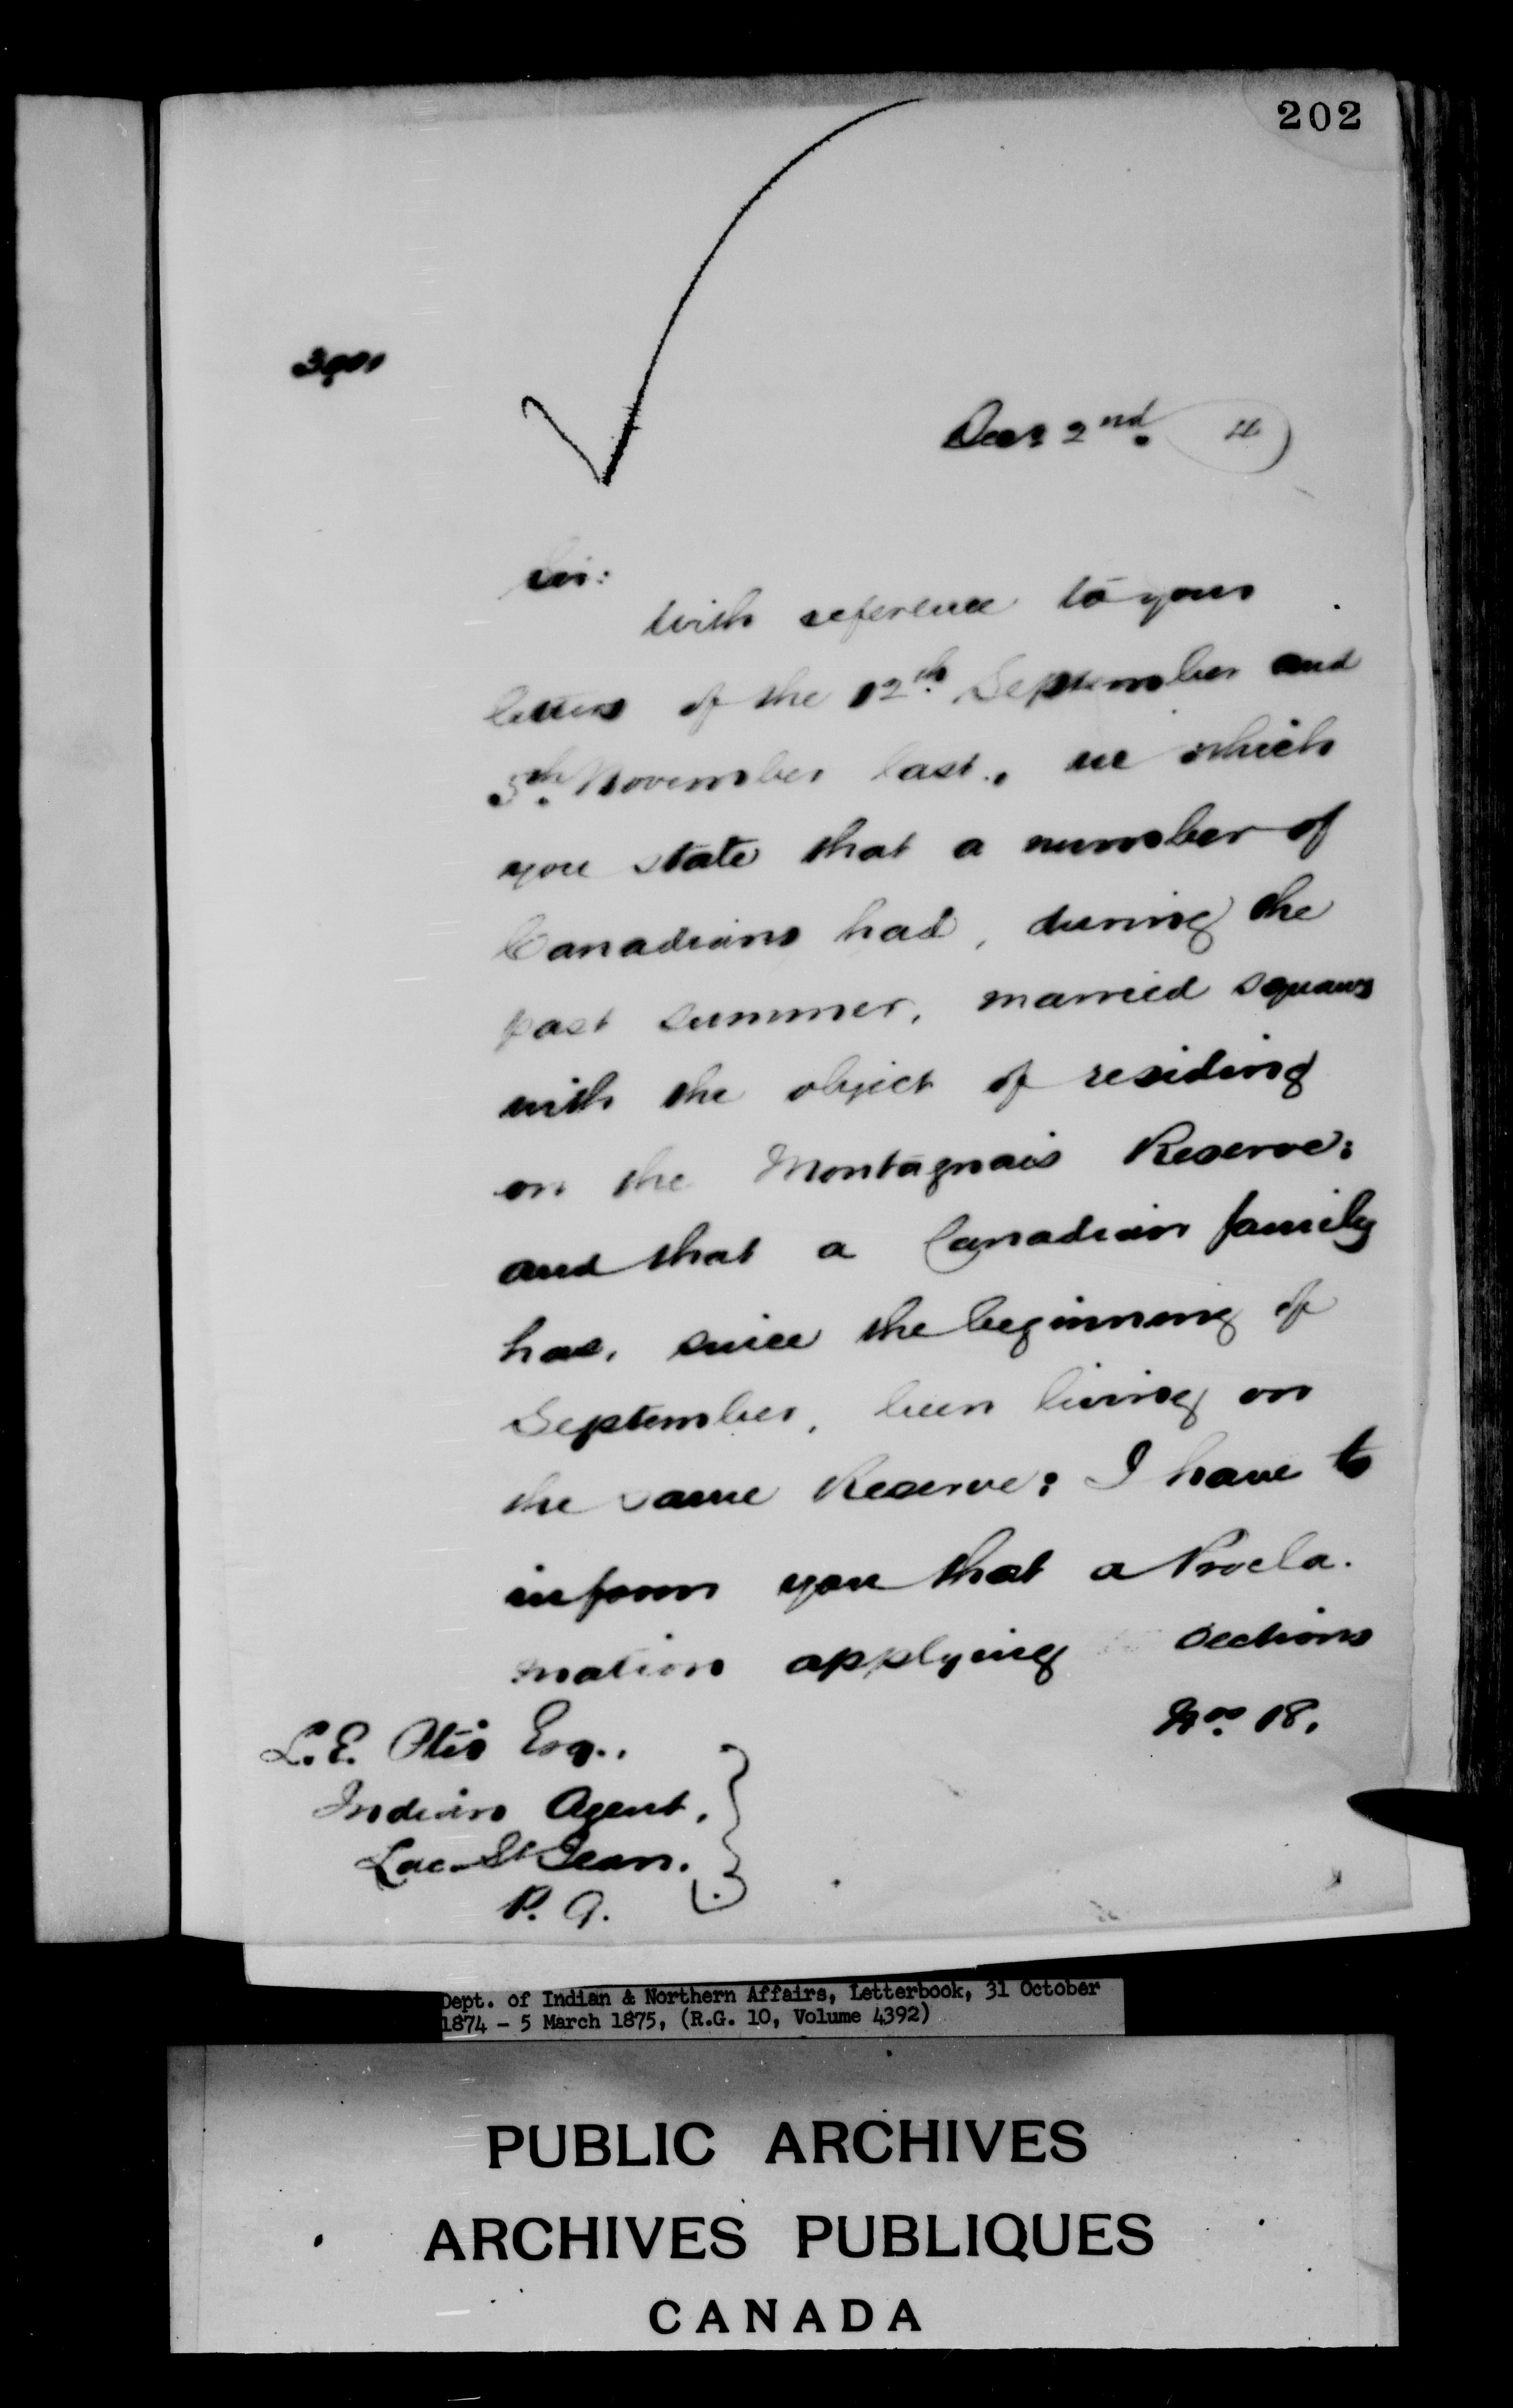 202
Dec. 2nd. 4
Sir:
With reference to your
letters of the 12th. September and
5th. November last, in which
you state that a number of
Canadians had, during the
past summer, married squaws
with the object of residing
on the Montagnais Reserve:
and that a Canadian family
has, since the beginning of
September, been living on
the same Reserve: I have to
inform you that a Procla-
mation applying Sections
Nos. 18,
L. E. Otis Esq.,
Indian Agent,
Lac St Jean.
P. Q.
Dept. of Indian & Northern Affairs, Letterbook, 31 October
1874 - 5 March 1875, (R.G. 10, Volume 4392)
PUBLIC ARCHIVES
ARCHIVES PUBLIQUES
CANADA